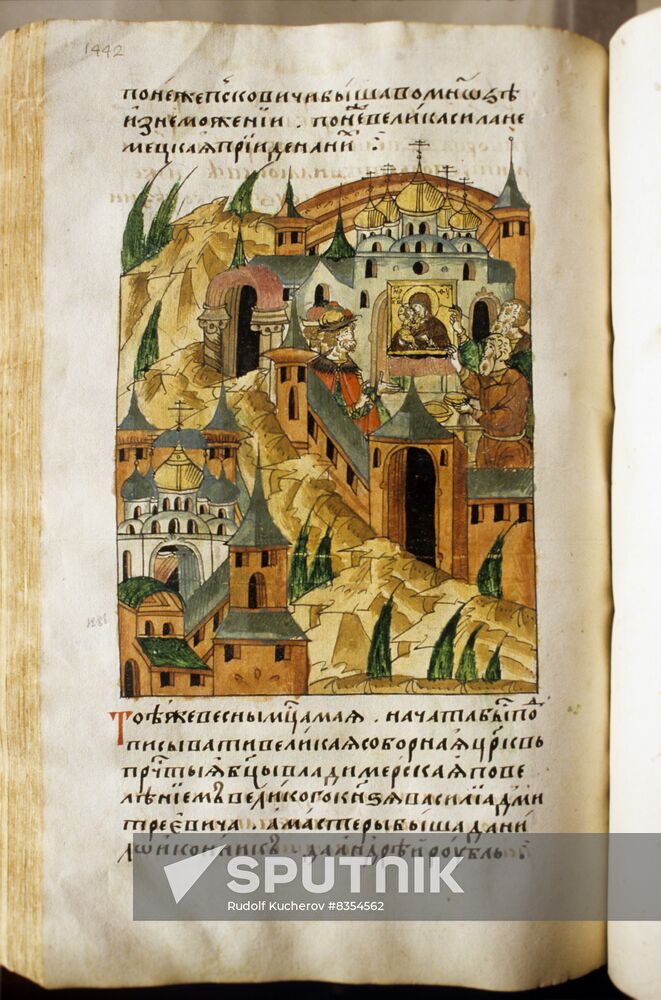 1442
понежепс̑ковичибышавомнѡзѣ
изнеможенїи . понⷤевеликасилане
мецкаяпрїиденани҃ :
Тоеⷤявесныⷨмц҃амая . начатабы́тⷭ҇поⷣ
писыватївеликаясоборнаяцр҃ковь
прч҃тыѧбц҃ывладимерскаяпове
лѣнїемъвели́когокн҃зѧвасилїадⷨми
трѣевича амастерыбышадани
лѡиконникъ даанⷣдрѣйроубль :
SPUTNIK
Rudolf Kucherov #8354562